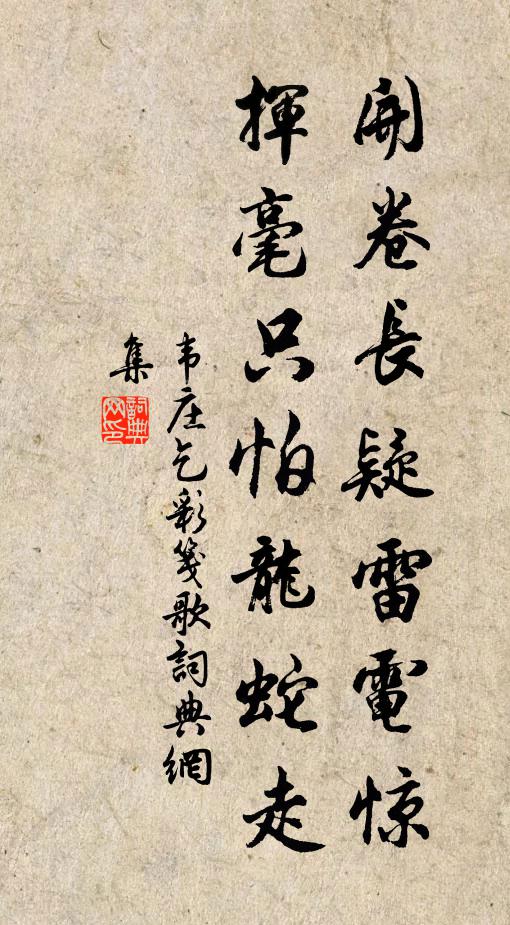 開卷長疑雷電惊
揮毫只怕龍蛇走
韦庄乞彩箋歌詞典網
集
詞典
网印